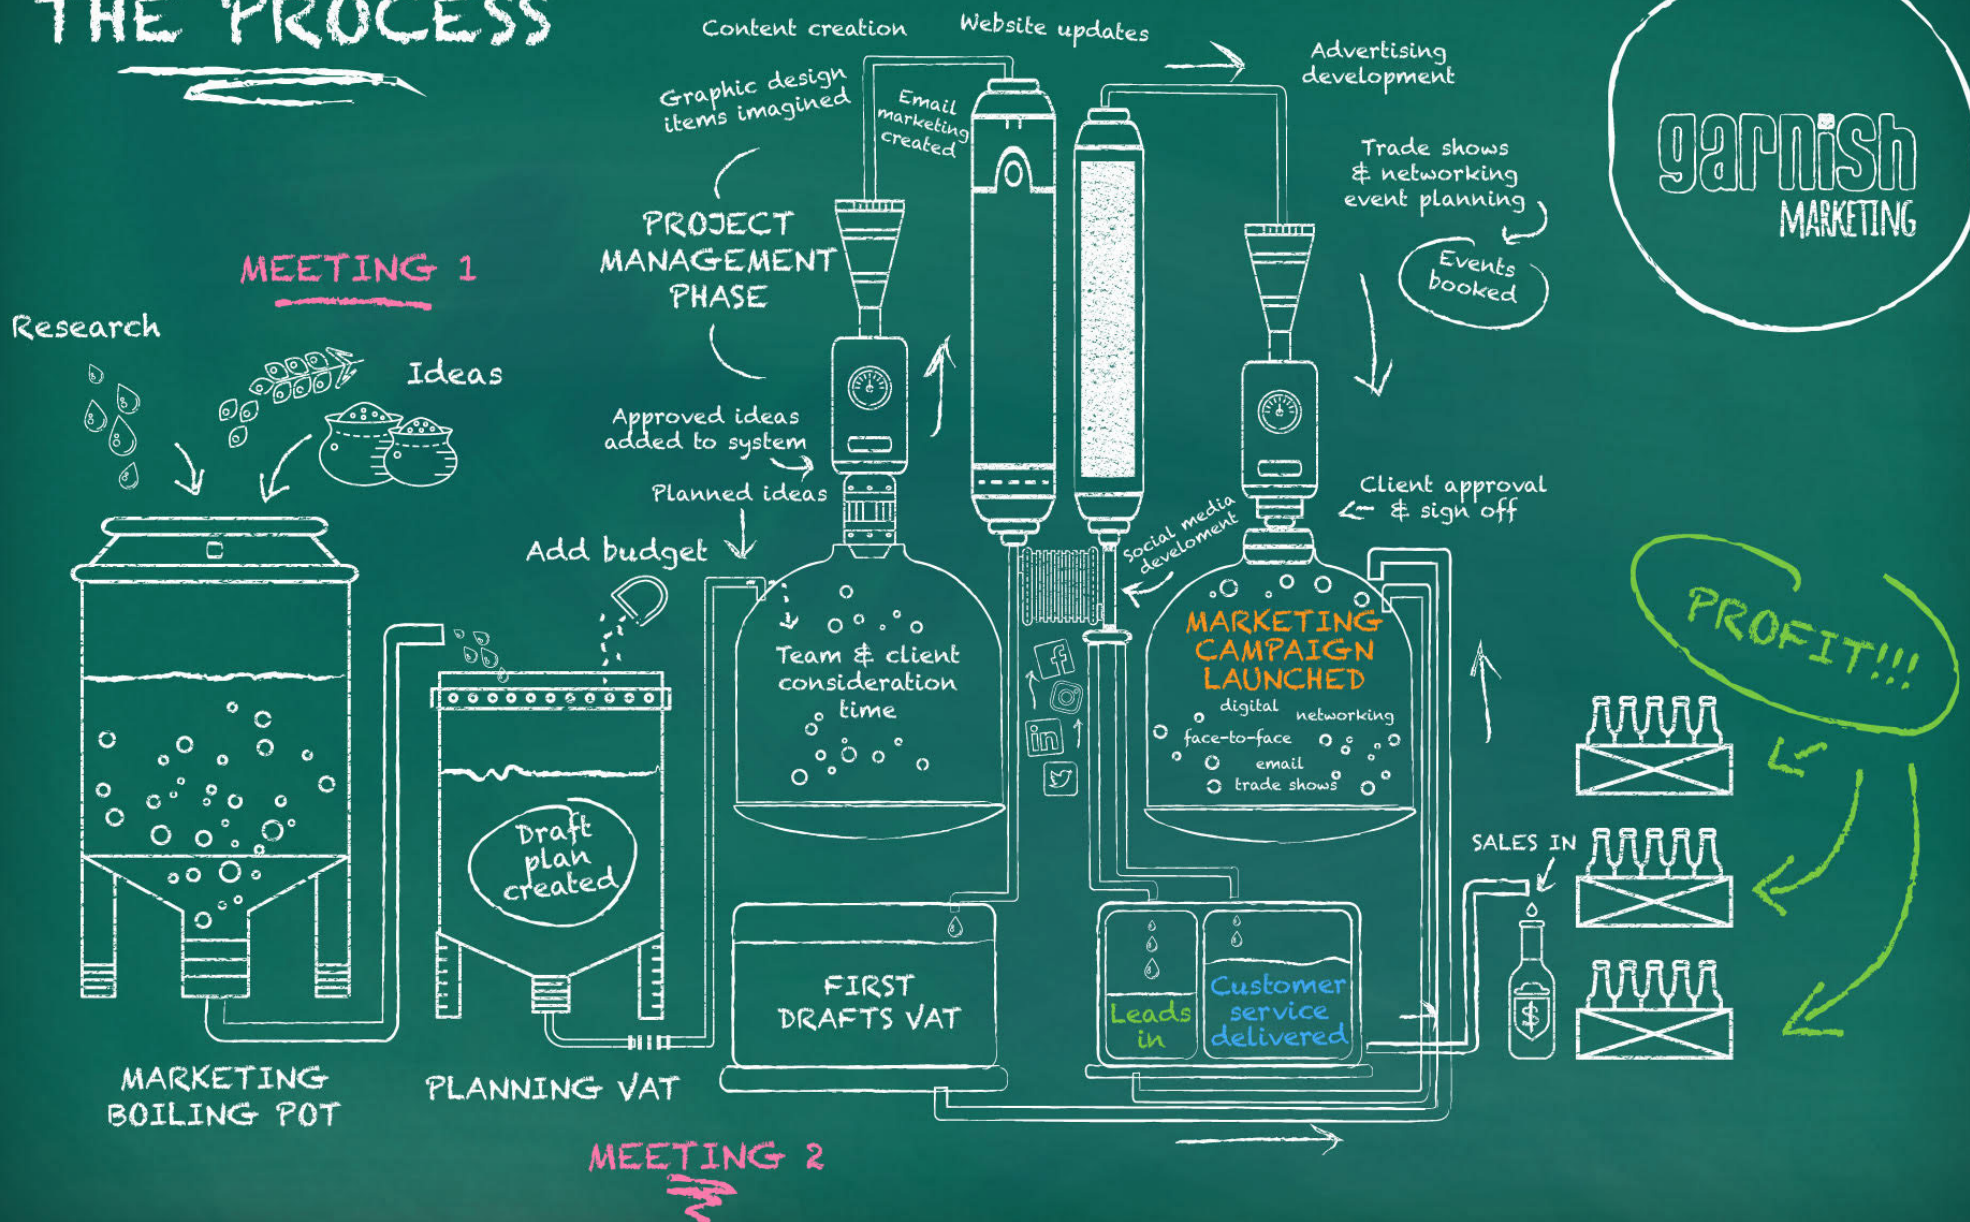 THE PROCESS
Content creation
Website updates
Graphic design
items imagined
Email
marketing
created
Advertising
development
Trade shows
& networking
event planning
Events
booked
garnish
MARKETING
PROJECT
MANAGEMENT
PHASE
MEETING 1
Research
Ideas
Approved ideas
added to system
Planned ideas
Add budget
Client approval
& sign off
Social media
develoment
Team & client
consideration
time
MARKETING
CAMPAIGN
LAUNCHED
digital
networking
face-to-face
email
trade shows
PROFIT!!!
f
in
Draft
plan
created
SALES IN
$
FIRST
DRAFTS VAT
Leads
in
Customer
service
delivered
MARKETING
BOILING POT
PLANNING VAT
MEETING 2